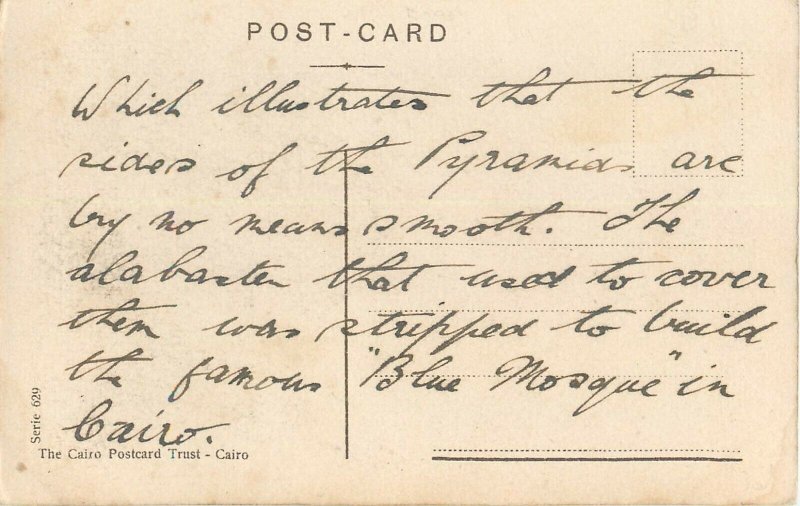 POST-CARD
Which illustrates that the
sides of the Pyramids are
by no means smooth. The
alabaster that used to cover
them was stripped to build
the famous "Blue Mosque" in
Cairo.
Serie 629
The Cairo Postcard Trust - Cairo